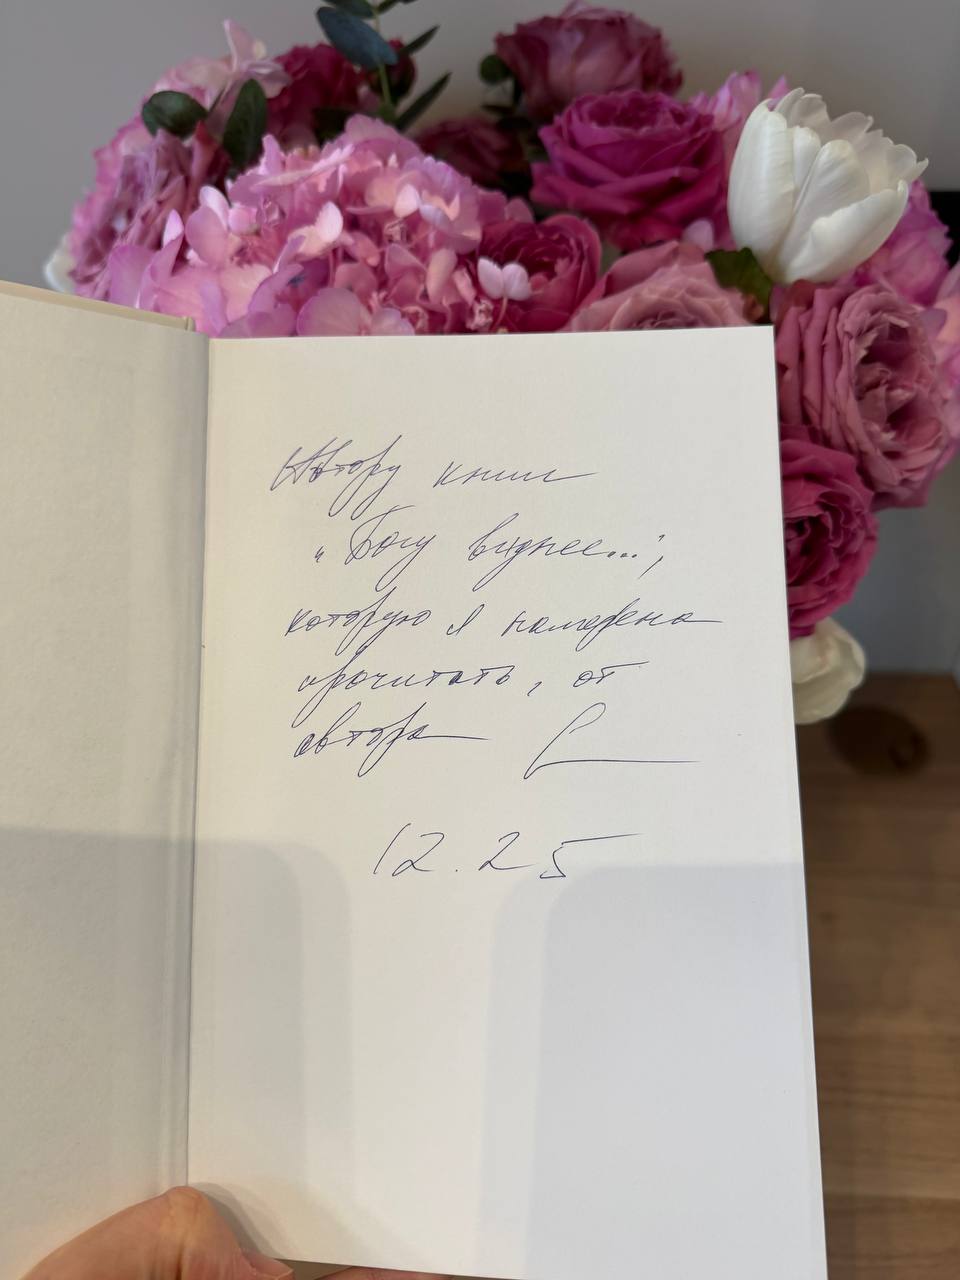 Автору книги
"Богу виднее...",
которую я намерена
прочитать, от
автора
12.25